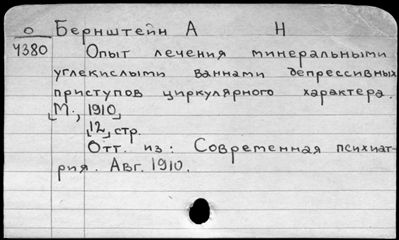 О Бернштейн А Н
4380 Опыт лечения минеральными
углекислыми ваннами депрессивных
приступов циркулярного характера.
[М., 1910]
[12] стр.
Отт. из: Современная психиат-
рия. Авг. 1910.